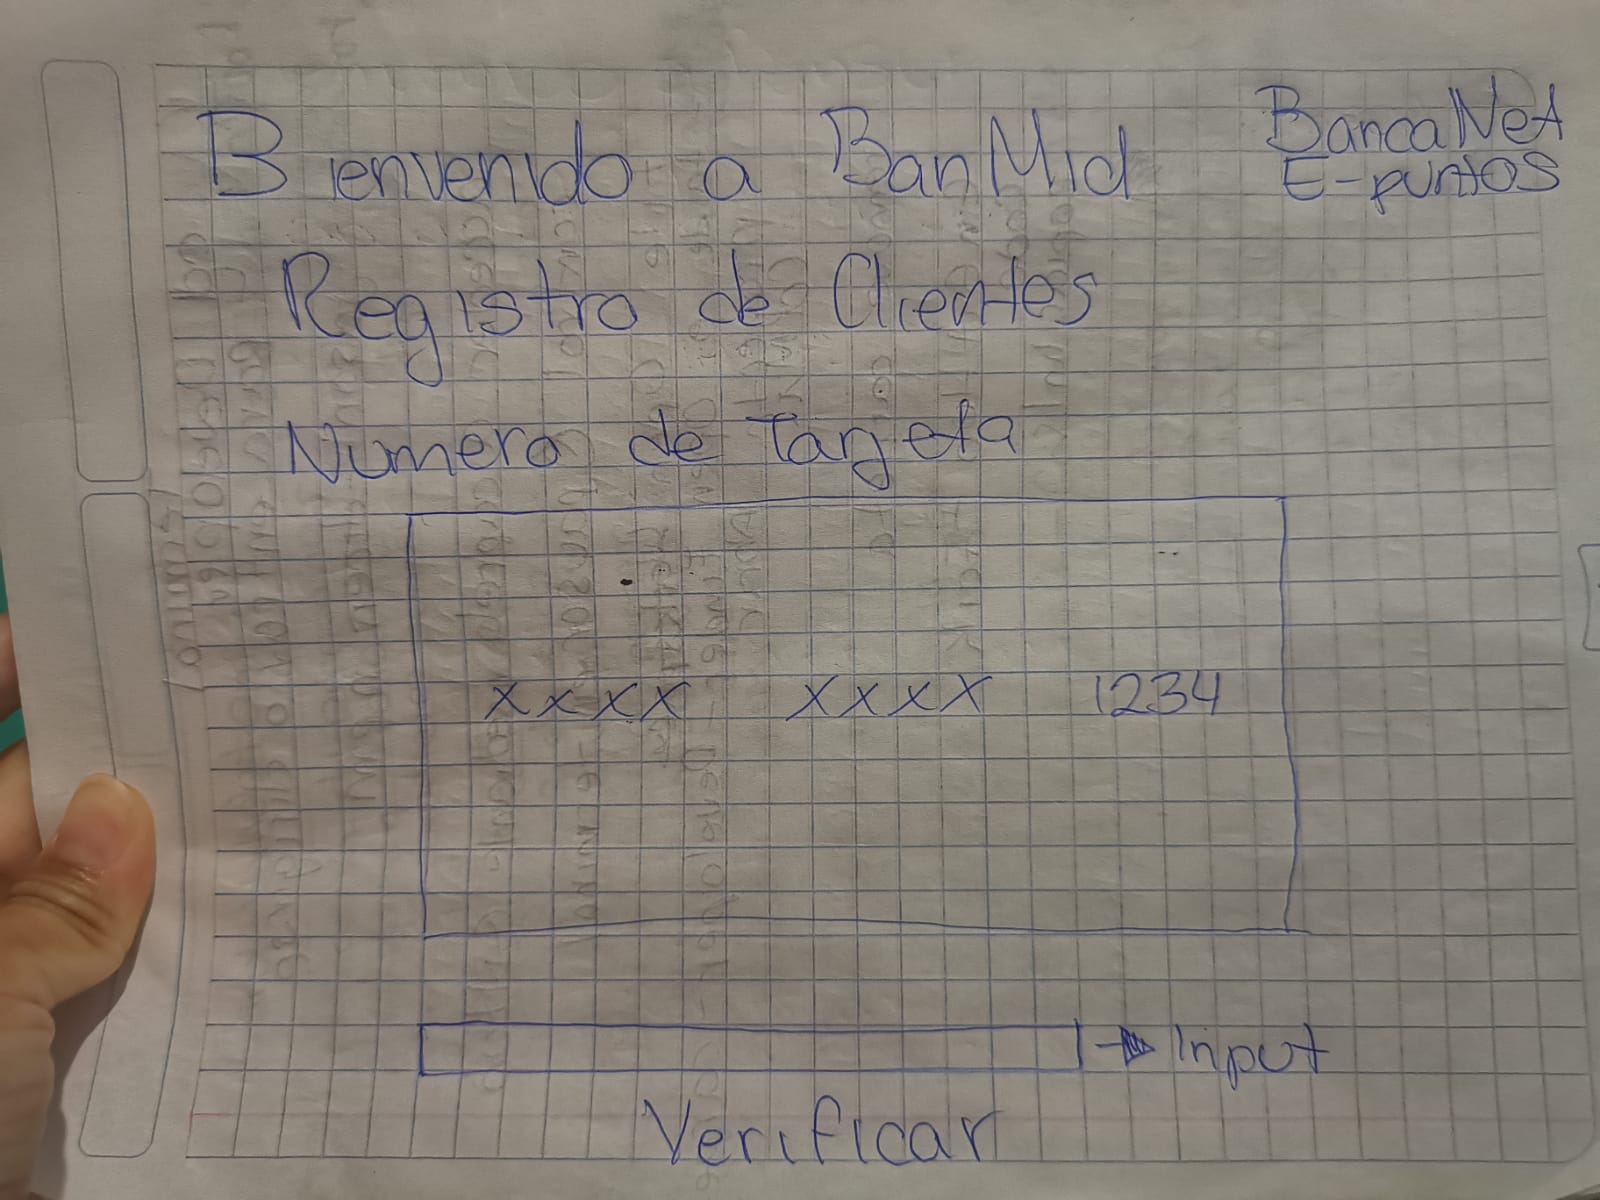 Bienvenido a BanMid
BancaNet
E-puntos
Registro de Clientes
Numero de Tarjeta
XXXX XXXX 1234
Input
Verificar